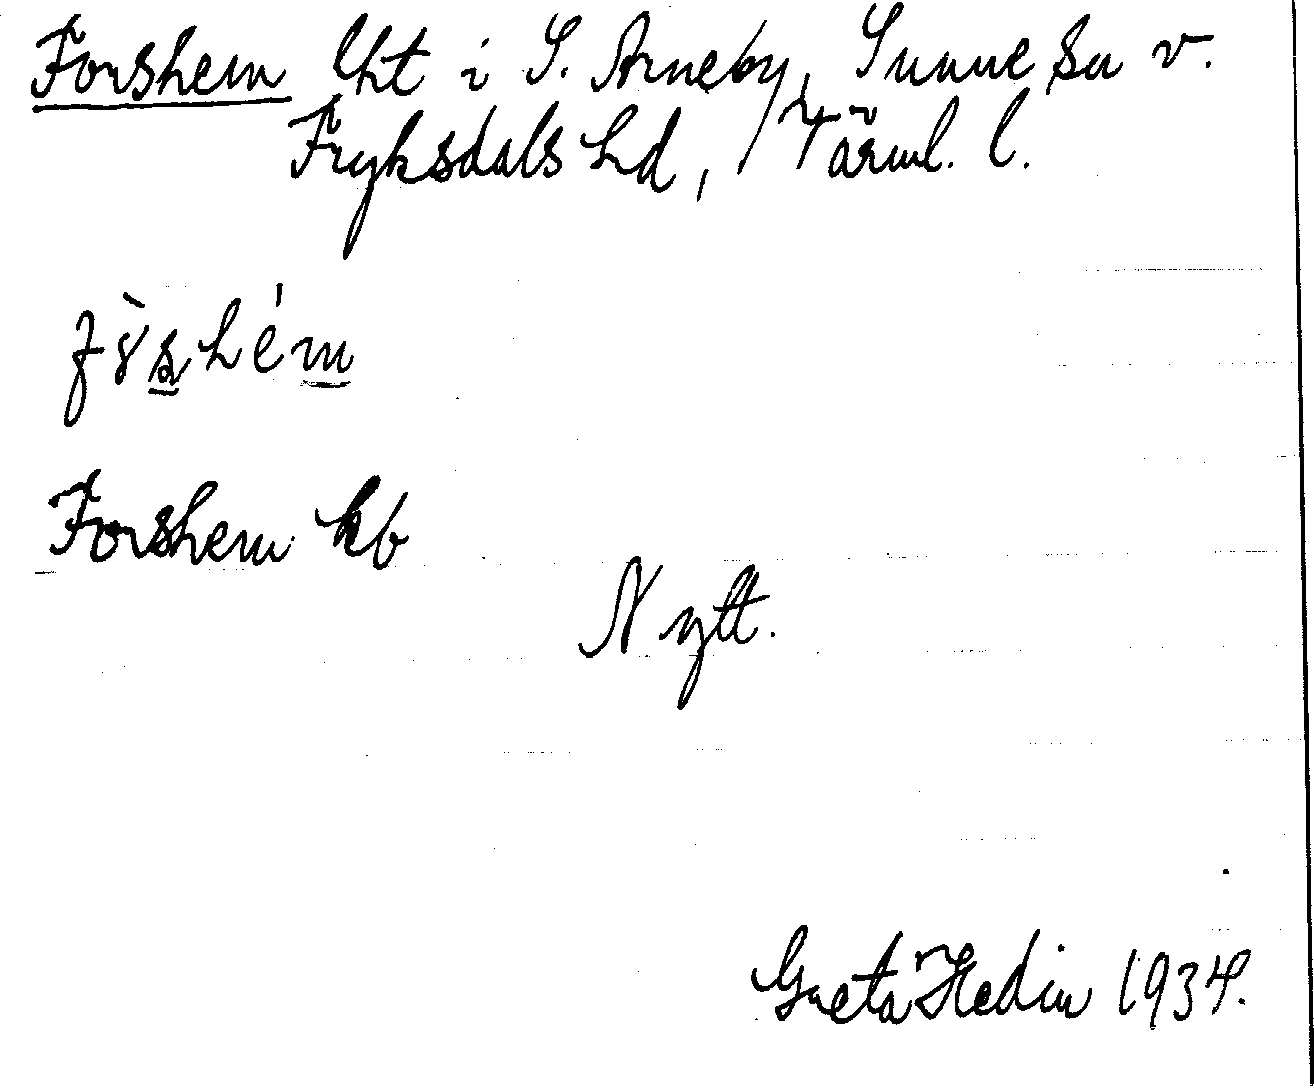 Forshem lht i S. Arneby, Sunne sn v.
Fryksdals hd, Värml. l.
fɤ̀shém
Forshem kb
Nytt.
Greta Hedin 1934.